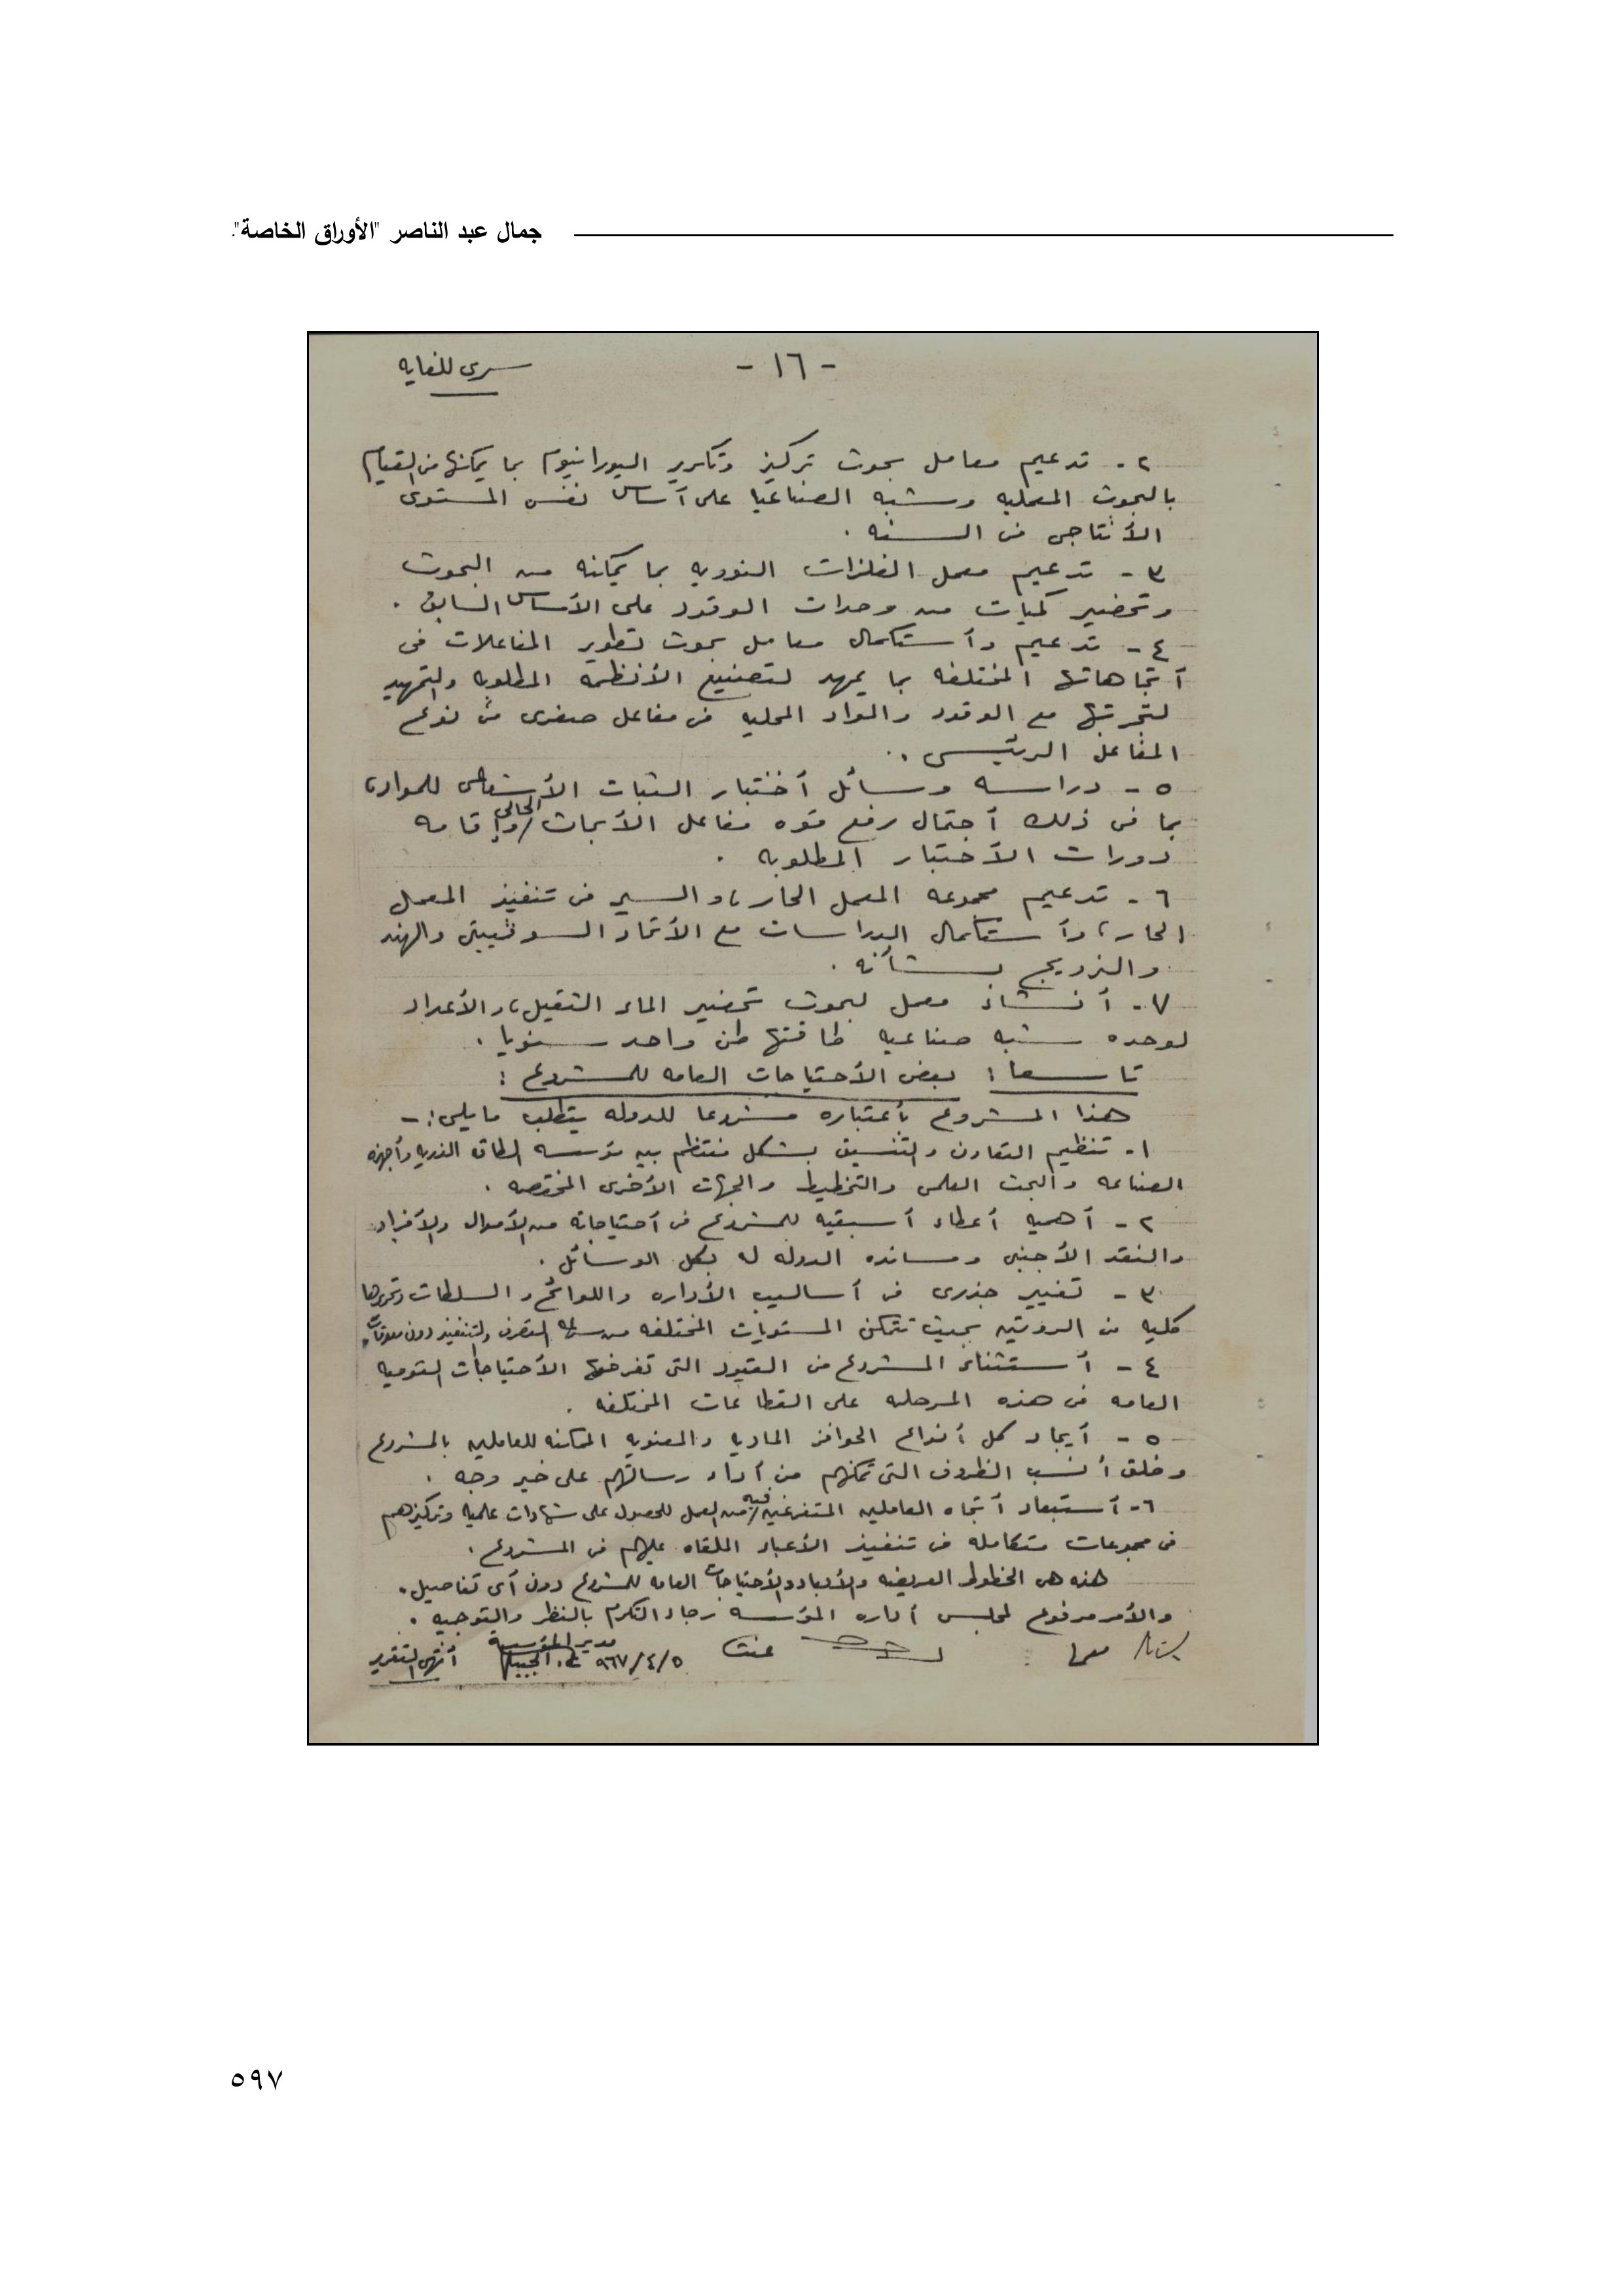 جمال عبد الناصر "الأوراق الخاصة".
- ١٦ -
سرى للغايه
٢ - تدعيم معامل بحوث تركيز وتكرير اليورانيوم بما يمكنها من القيام
بالبحوث المعمليه وشبه الصناعيا على أساس نفس المستوى
الأنتاجى فى السنه .
٣ - تدعيم معمل الفلزات النوويه بما يمكنه من البحوث
وتحضير كميات من وحدات الوقود على الأساس السابق .
٤ - تدعيم وأستكمال معامل بحوث تطوير المفاعلات فى
أتجاهاتها المختلفه بما يمهد لتصنيع الأنظمه المطلوبه والتمهيد
لتجربتها مع الوقود والمواد المحليه فى مفاعل صغرى من نوع
المفاعل الرئيسى .
٥ - دراسه وسائل أختبار الثبات الأشعاعى للمواد،
بما فى ذلك أحتمال رفع قوه مفاعل الأبحاث الحالى وإقامه
دورات الأختبار المطلوبه .
٦ - تدعيم مجموعه المعمل الحار، والسير فى تنفيذ المعمل
الحار، وأستكمال الدراسات مع الأتحاد السوفييتى والهند
والنرويج بشأنه .
٧ - أنشاء معمل لبحوث تحضير الماء الثقيل، والأعداد
لوحده شبه صناعيه طاقتها طن واحد سنويا .
تاسعا : بعض الأحتياجات العامه للمشروع :
هذا المشروع بأعتباره مشروعا للدوله يتطلب مايلى :-
١ - تنظيم التعاون والتنسيق بشكل منتظم بين مؤسسه الطاقه الذريه وأجهزه
الصناعه والبحث العلمى والتخطيط والجهات الأخرى المختصه .
٢ - أهميه أعطاء أسبقيه للمشروع فى أحتياجاته من الأموال والأفراد
والنقد الأجنبى ومسانده الدوله له بكل الوسائل .
٣ - تغيير جذرى فى أساليب الأداره واللوائح والسلطات وتحريرها
كليه من الروتين بحيث تتمكن المستويات المختلفه من التصرف والتنفيذ دون معوقات .
٤ - أستثناء المشروع من القيود التى تفرضها الأحتياجات القوميه
العامه فى هذه المرحله على القطاعات المختلفه .
٥ - أيجاد كل أنواع الحوافز الماديه والمعنويه الممكنه للعاملين بالمشروع
وخلق أنسب الظروف التى تمكنهم من أداء رسالتهم على خير وجه .
٦ - أستبعاد أتجاه العاملين المتفرغين فيه من العمل للحصول على شهادات علميه وتركيزهم
فى مجموعات متكامله فى تنفيذ الأعباء الملقاه عليهم فى المشروع .
هذه هى الخطوط العريضه والأبعاد والأحتياجات العامه للمشروع دون أى تفاصيل .
والأمر مرفوع لمجلس أداره المؤسسه رجاء التكرم بالنظر والتوجيه .
مدير المؤسسة
٩٦٧/٤/٥
أنتهى التقرير
٥٩٧